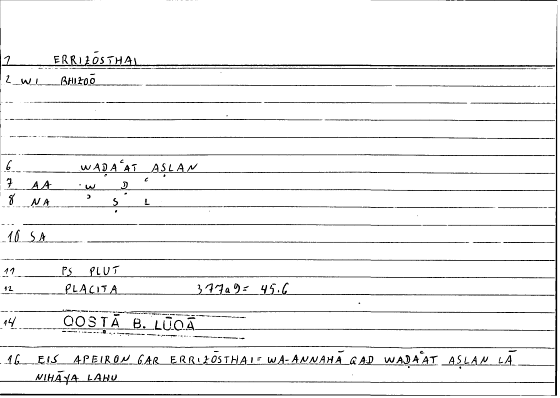 1 ERRIZŌSTHAI
2 WI RHIZOŌ
6 WAḌAʿAT AṢLAN
7 AA W Ḍ ʿ
8 NA ʾ Ṣ L
10 SA
11 PS PLUT
12 PLACITA 377a9= 45.6
14 QOSṬĀ B. LŪQĀ
16 EIS APEIRON GAR ERRIZŌSTHAI= WA-ANNAHĀ QAD WAḌAʿAT AṢLAN LĀ
NIHĀYA LAHU